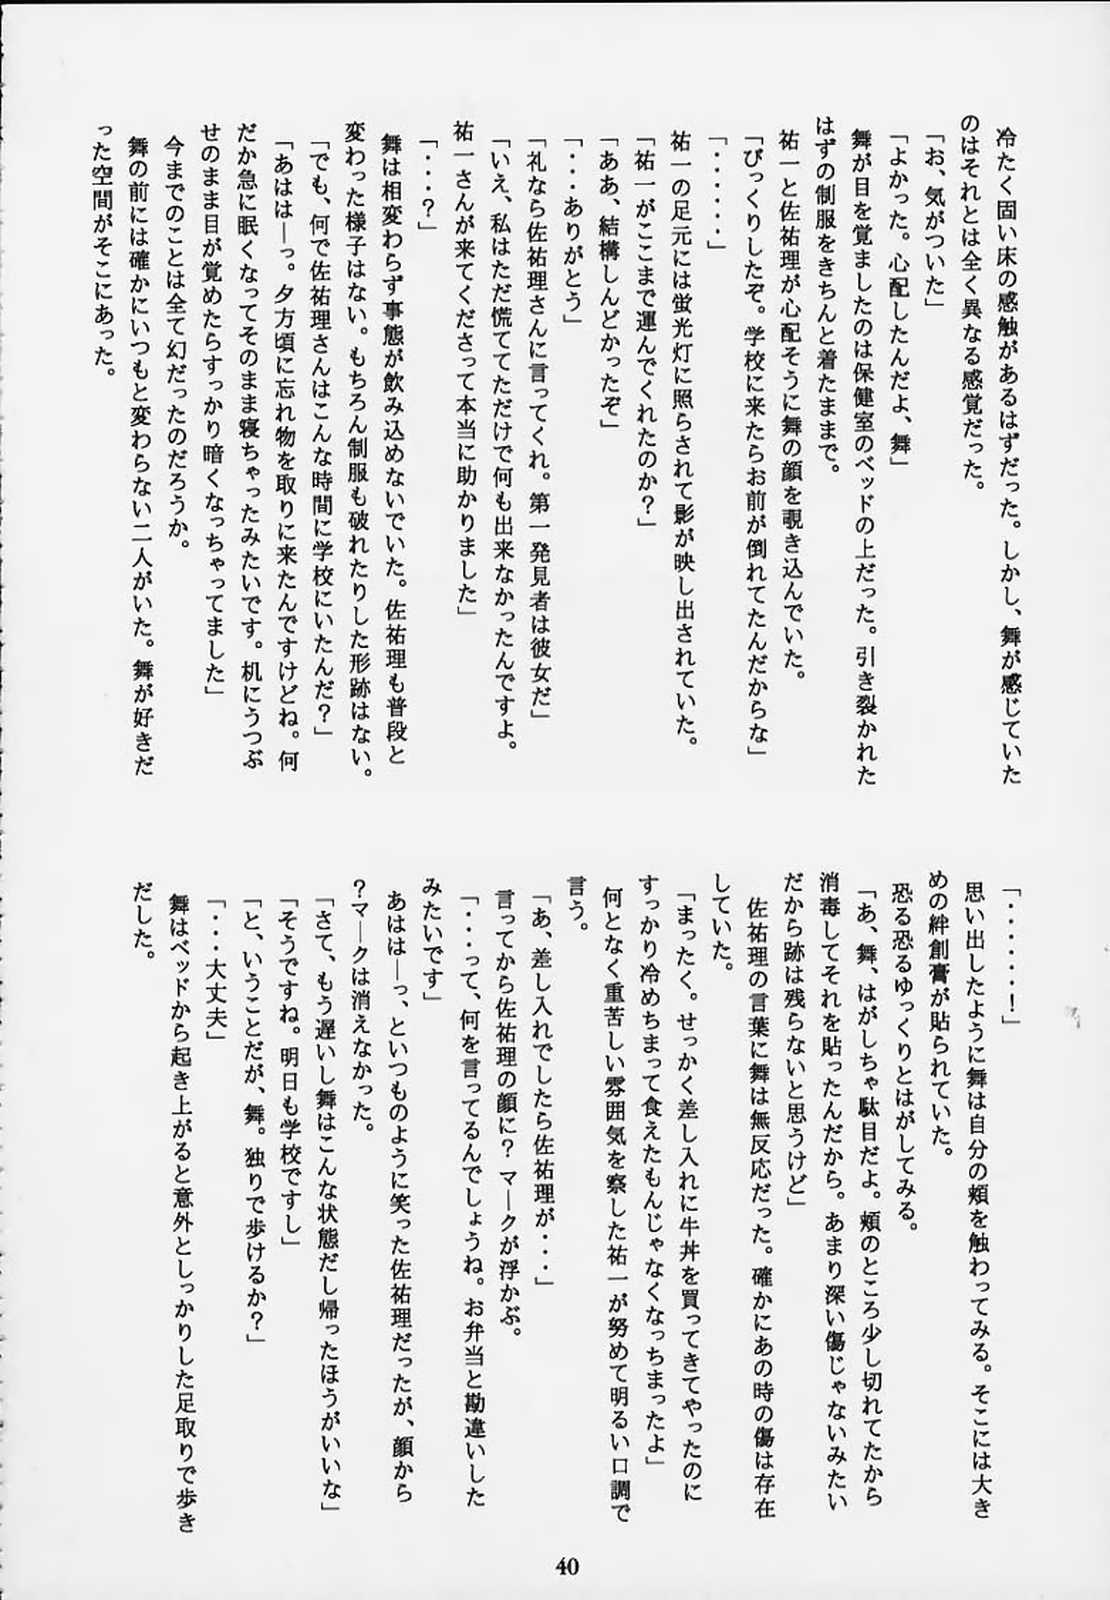 冷たく固い床の感触があるはずだった。しかし、舞が感じていた
のはそれとは全く異なる感覚だった。
「お、気がついた」
「よかった。心配したんだよ、舞」
舞が目を覚ましたのは保健室のベッドの上だった。引き裂かれた
はずの制服をきちんと着たままで。
祐一と佐祐理が心配そうに舞の顔を覗き込んでいた。
「びっくりしたぞ。学校に来たらお前が倒れてたんだからな」
「・・・・・・」
祐一の足元には蛍光灯に照らされて影が映し出されていた。
「祐一がここまで運んでくれたのか？」
「ああ、結構しんどかったぞ」
「・・・ありがとう」
「礼なら佐祐理さんに言ってくれ。第一発見者は彼女だ」
「いえ、私はただ慌ててただけで何も出来なかったんですよ。
祐一さんが来てくださって本当に助かりました」
「・・・？」
舞は相変わらず事態が飲み込めないでいた。佐祐理も普段と
変わった様子はない。もちろん制服も破れたりした形跡はない。
「でも、何で佐祐理さんはこんな時間に学校にいたんだ？」
「あははーっ。夕方頃に忘れ物を取りに来たんですけどね。何
だか急に眠くなってそのまま寝ちゃったみたいです。机にうつぶ
せのまま目が覚めたらすっかり暗くなっちゃってました」
今までのことは全て幻だったのだろうか。
舞の前には確かにいつもと変わらない二人がいた。舞が好きだ
った空間がそこにあった。
「・・・・・・！」
思い出したように舞は自分の頬を触わってみる。そこには大き
めの絆創膏が貼られていた。
恐る恐るゆっくりとはがしてみる。
「あ、舞、はがしちゃ駄目だよ。頬のところ少し切れてたから
消毒してそれを貼ったんだから。あまり深い傷じゃないみたい
だから跡は残らないと思うけど」
佐祐理の言葉に舞は無反応だった。確かにあの時の傷は存在
していた。
「まったく。せっかく差し入れに牛丼を買ってきてやったのに
すっかり冷めちまって食えたもんじゃなくなっちまったよ」
何となく重苦しい雰囲気を察した祐一が努めて明るい口調で
言う。
「あ、差し入れでしたら佐祐理が・・・」
言ってから佐祐理の顔に？マークが浮かぶ。
「・・・って、何を言ってるんでしょうね。お弁当と勘違いした
みたいです」
あははーっ、といつものように笑った佐祐理だったが、顔から
？マークは消えなかった。
「さて、もう遅いし舞はこんな状態だし帰ったほうがいいな」
「そうですね。明日も学校ですし」
「と、いうことだが、舞。独りで歩けるか？」
「・・・大丈夫」
舞はベッドから起き上がると意外としっかりした足取りで歩き
だした。
40